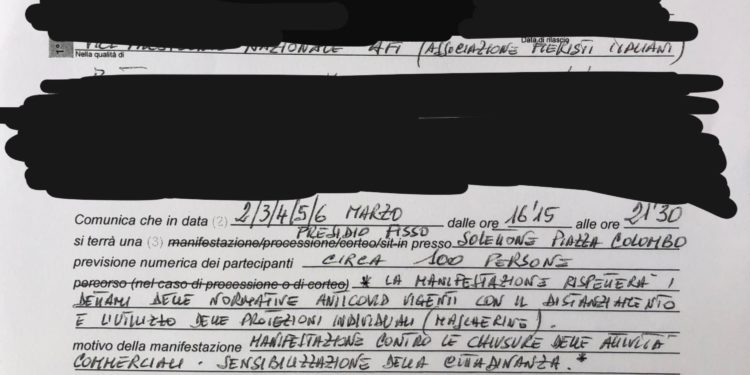 1°
Data di rilascio
VICE PRESIDENTE NAZIONALE AFI (ASSOCIAZIONE FIERISTI ITALIANI)
Nella qualità di
Comunica che in data (2) 2/3/4/5/6 MARZO dalle ore 16'15 alle ore 21'30
PRESIDIO FISSO
si terrà una (3) manifestazione/processione/corteo/sit-in presso SOLETTONE PIAZZA COLOMBO
previsione numerica dei partecipanti CIRCA 100 PERSONE
percorso (nel caso di processione o di corteo) * LA MANIFESTAZIONE RISPETTERÀ I
DETTAMI DELLE NORMATIVE ANTICOVID VIGENTI CON IL DISTANZIAMENTO
E L'UTILIZZO DELLE PROTEZIONI INDIVIDUALI (MASCHERINE).
motivo della manifestazione MANIFESTAZIONE CONTRO LE CHIUSURE DELLE ATTIVITÀ
COMMERCIALI - SENSIBILIZZAZIONE DELLA CITTADINANZA. *